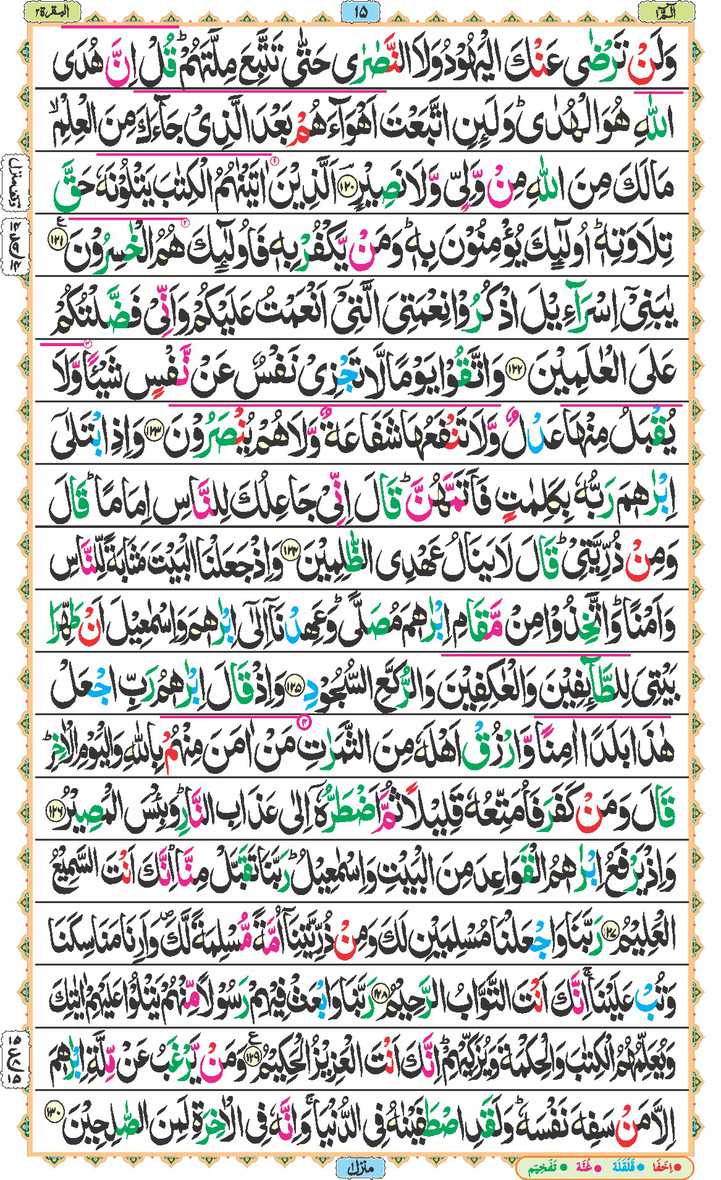 البقرة ٢
١٥
الٓمّٓ ١
وَلَنْ تَرْضٰى عَنْكَ الْيَهُوْدُ وَلَا النَّصٰرٰى حَتّٰى تَتَّبِعَ مِلَّتَهُمْ ؕ قُلْ اِنَّ هُدَى
اللّٰهِ هُوَ الْهُدٰى ؕ وَلَئِنِ اتَّبَعْتَ اَهْوَآءَهُمْ بَعْدَ الَّذِىْ جَآءَكَ مِنَ الْعِلْمِ ۙ
مَا لَكَ مِنَ اللّٰهِ مِنْ وَّلِىٍّ وَّلَا نَصِيْرٍ ؔ ﴿۱۲۰﴾ اَلَّذِيْنَ اٰتَيْنٰهُمُ الْكِتٰبَ يَتْلُوْنَهٗ حَقَّ
تِلَاوَتِهٖ ؕ اُولٰٓئِكَ يُؤْمِنُوْنَ بِهٖ ؕ وَمَنْ يَّكْفُرْ بِهٖ فَاُولٰٓئِكَ هُمُ الْخٰسِرُوْنَ ﴿۱۲۱﴾
يٰبَنِىْٓ اِسْرَآءِيْلَ اذْكُرُوْا نِعْمَتِىَ الَّتِىْٓ اَنْعَمْتُ عَلَيْكُمْ وَاَنِّىْ فَضَّلْتُكُمْ
عَلَى الْعٰلَمِيْنَ ﴿۱۲۲﴾ وَاتَّقُوْا يَوْمًا لَّا تَجْزِىْ نَفْسٌ عَنْ نَّفْسٍ شَيْـًٔا وَّلَا
يُقْبَلُ مِنْهَا عَدْلٌ وَّلَا تَنْفَعُهَا شَفَاعَةٌ وَّلَا هُمْ يُنْصَرُوْنَ ﴿۱۲۳﴾ وَاِذِ ابْتَلٰٓى
اِبْرٰهٖمَ رَبُّهٗ بِكَلِمٰتٍ فَاَتَمَّهُنَّ ؕ قَالَ اِنِّىْ جَاعِلُكَ لِلنَّاسِ اِمَامًا ؕ قَالَ
وَمِنْ ذُرِّيَّتِىْ ؕ قَالَ لَا يَنَالُ عَهْدِى الظّٰلِمِيْنَ ﴿۱۲۴﴾ وَاِذْ جَعَلْنَا الْبَيْتَ مَثَابَةً لِّلنَّاسِ
وَاَمْنًا ؕ وَاتَّخِذُوْا مِنْ مَّقَامِ اِبْرٰهٖمَ مُصَلًّى ؕ وَعَهِدْنَآ اِلٰٓى اِبْرٰهٖمَ وَاِسْمٰعِيْلَ اَنْ طَهِّرَا
بَيْتِىَ لِلطَّآئِفِيْنَ وَالْعٰكِفِيْنَ وَالرُّكَّعِ السُّجُوْدِ ﴿۱۲۵﴾ وَاِذْ قَالَ اِبْرٰهٖمُ رَبِّ اجْعَلْ
هٰذَا بَلَدًا اٰمِنًا وَّارْزُقْ اَهْلَهٗ مِنَ الثَّمَرٰتِ مَنْ اٰمَنَ مِنْهُمْ بِاللّٰهِ وَالْيَوْمِ الْاٰخِرِ ؕ
قَالَ وَمَنْ كَفَرَ فَاُمَتِّعُهٗ قَلِيْلًا ثُمَّ اَضْطَرُّهٗٓ اِلٰى عَذَابِ النَّارِ ؕ وَبِئْسَ الْمَصِيْرُ ﴿۱۲۶﴾
وَاِذْ يَرْفَعُ اِبْرٰهٖمُ الْقَوَاعِدَ مِنَ الْبَيْتِ وَاِسْمٰعِيْلُ ؕ رَبَّنَا تَقَبَّلْ مِنَّا ؕ اِنَّكَ اَنْتَ السَّمِيْعُ
الْعَلِيْمُ ﴿۱۲۷﴾ رَبَّنَا وَاجْعَلْنَا مُسْلِمَيْنِ لَكَ وَمِنْ ذُرِّيَّتِنَآ اُمَّةً مُّسْلِمَةً لَّكَ ۪ وَاَرِنَا مَنَاسِكَنَا
وَتُبْ عَلَيْنَا ۚ اِنَّكَ اَنْتَ التَّوَّابُ الرَّحِيْمُ ﴿۱۲۸﴾ رَبَّنَا وَابْعَثْ فِيْهِمْ رَسُوْلًا مِّنْهُمْ يَتْلُوْا عَلَيْهِمْ اٰيٰتِكَ
وَيُعَلِّمُهُمُ الْكِتٰبَ وَالْحِكْمَةَ وَيُزَكِّيْهِمْ ؕ اِنَّكَ اَنْتَ الْعَزِيْزُ الْحَكِيْمُ ﴿۱۲۹﴾ وَمَنْ يَّرْغَبُ عَنْ مِّلَّةِ اِبْرٰهٖمَ
اِلَّا مَنْ سَفِهَ نَفْسَهٗ ؕ وَلَقَدِ اصْطَفَيْنٰهُ فِى الدُّنْيَا ۚ وَاِنَّهٗ فِى الْاٰخِرَةِ لَمِنَ الصّٰلِحِيْنَ ﴿۱۳۰﴾
منزل ١
اِخفَا قَلْقَلَة غُنَّة تَفْخِيْم